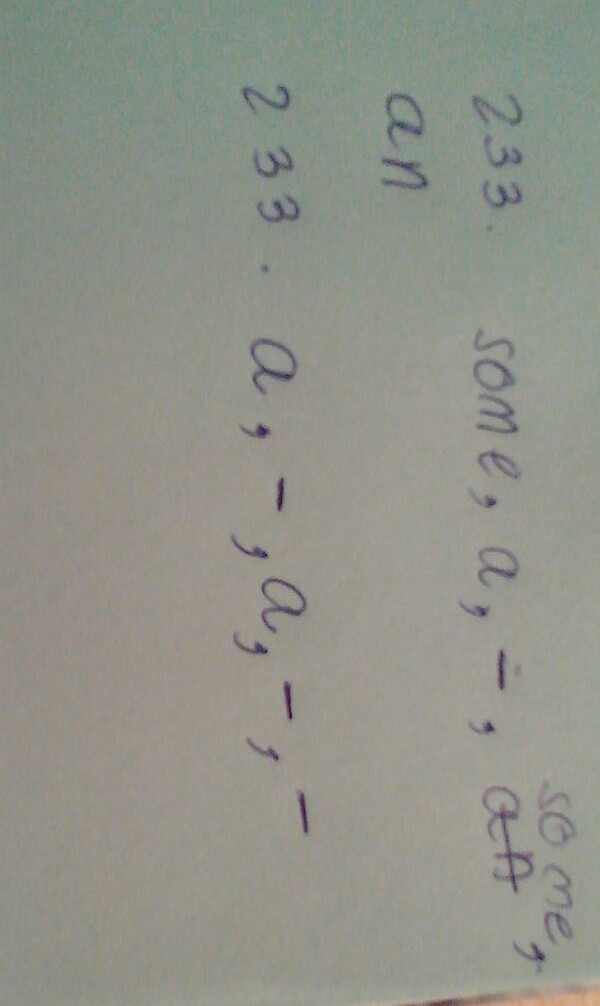 233. some, a, -, some,
an
233. a, -, a, -, -